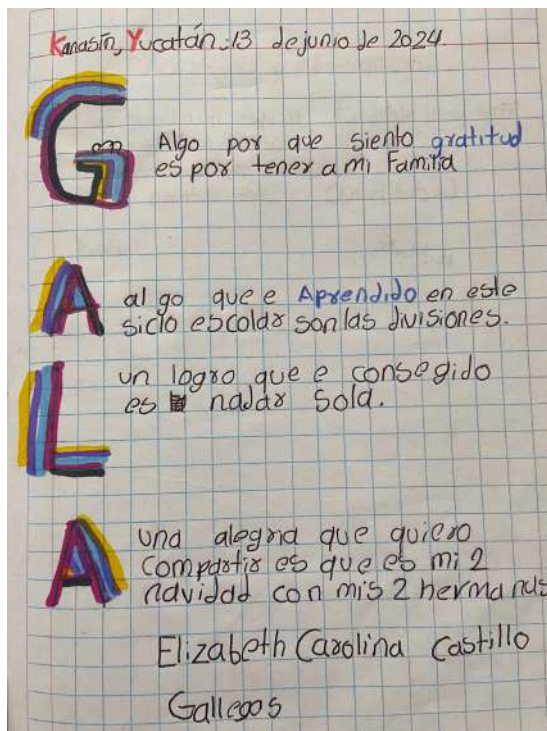 Kanasín, Yucatán:13 de junio de 2024.
G
Algo por que siento gratitud
es por tener a mi Familia
A
algo que e Aprendido en este
siclo escolar son las divisiones.
L
un logro que e consegido
es nadar sola.
A
una alegria que quiero
compartir es que es mi 2
navidad con mis 2 hermanas
Elizabeth Carolina Castillo
Gallegos